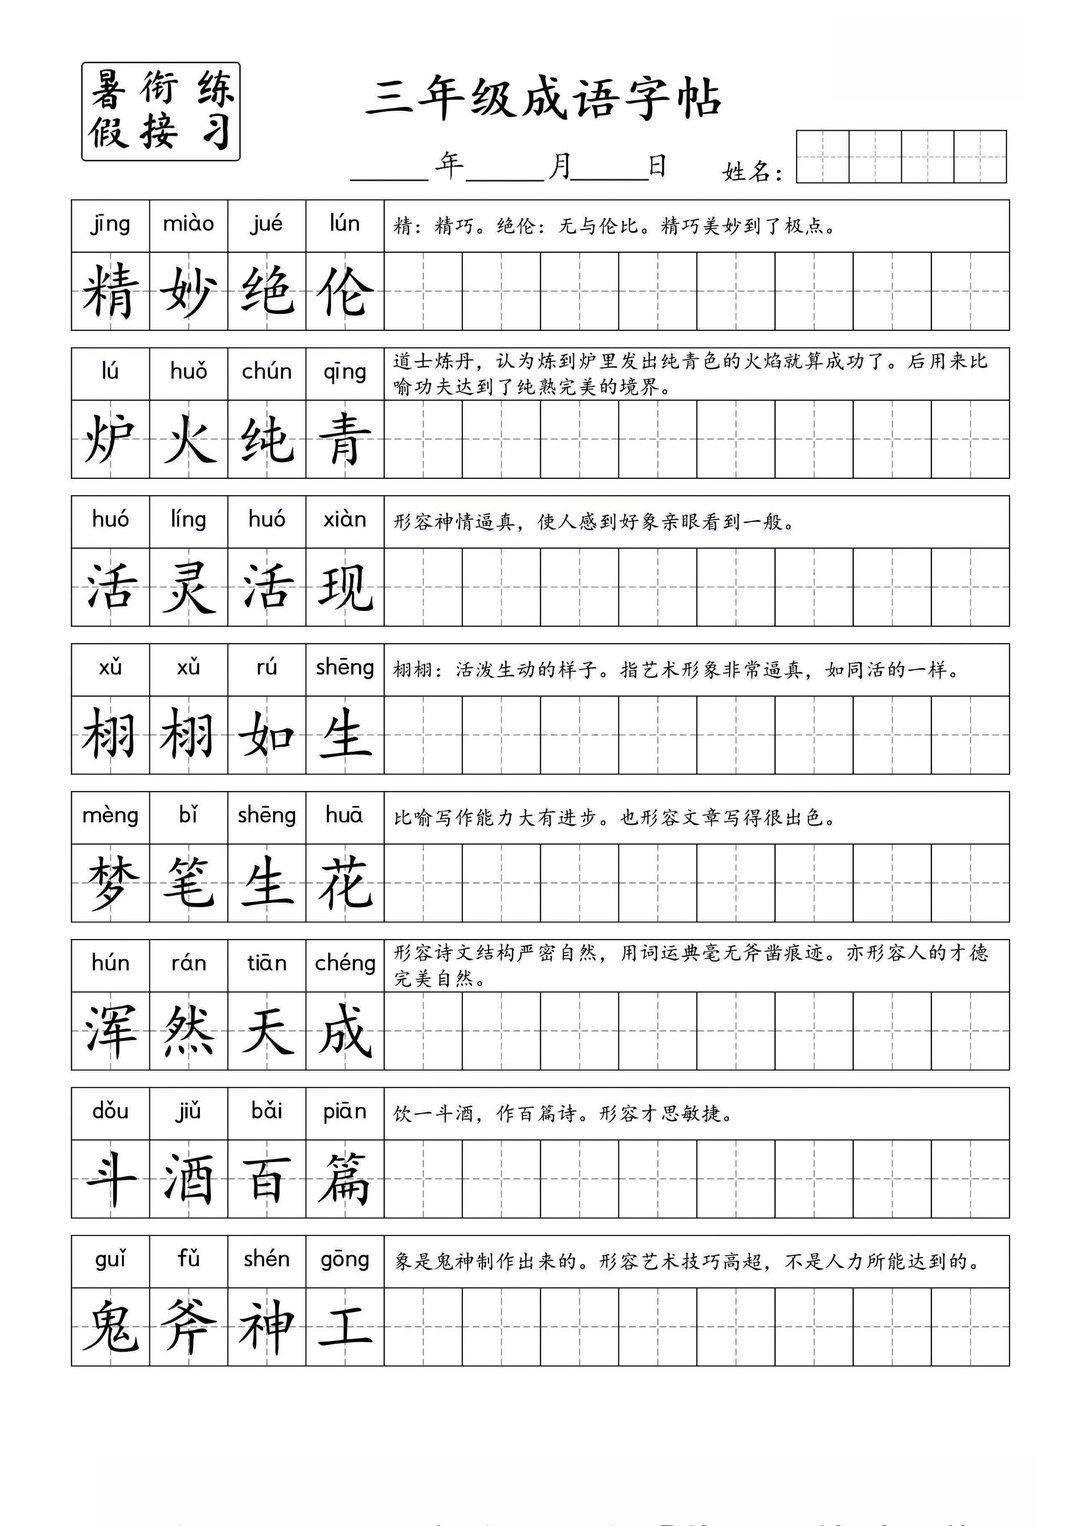 暑 衔 练
假 接 习
三年级成语字帖
年 月 日 姓名：
jīng miào jué lún
精：精巧。绝伦：无与伦比。精巧美妙到了极点。
精 妙 绝 伦
lú huǒ chún qīng
道士炼丹，认为炼到炉里发出纯青色的火焰就算成功了。后用来比
喻功夫达到了纯熟完美的境界。
炉 火 纯 青
huó líng huó xiàn
形容神情逼真，使人感到好象亲眼看到一般。
活 灵 活 现
xǔ xǔ rú shēng
栩栩：活泼生动的样子。指艺术形象非常逼真，如同活的一样。
栩 栩 如 生
mèng bǐ shēng huā
比喻写作能力大有进步。也形容文章写得很出色。
梦 笔 生 花
hún rán tiān chéng
形容诗文结构严密自然，用词运典毫无斧凿痕迹。亦形容人的才德
完美自然。
浑 然 天 成
dǒu jiǔ bǎi piān
饮一斗酒，作百篇诗。形容才思敏捷。
斗 酒 百 篇
guǐ fǔ shén gōng
象是鬼神制作出来的。形容艺术技巧高超，不是人力所能达到的。
鬼 斧 神 工